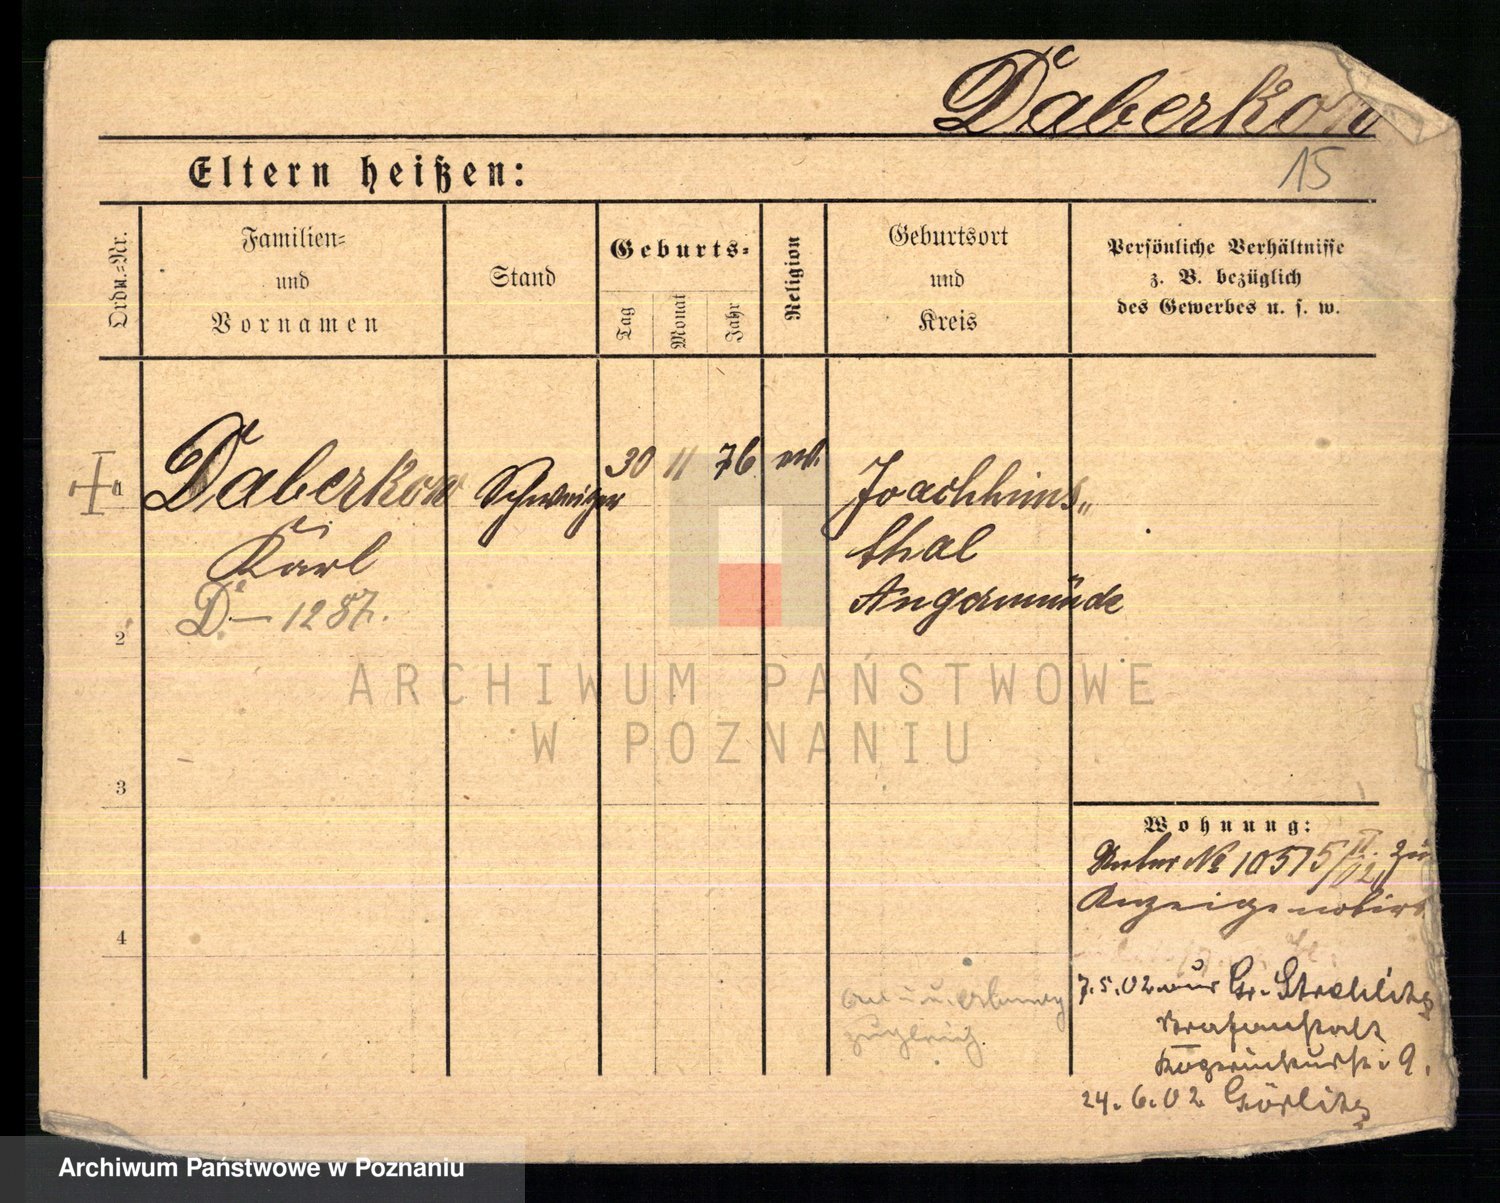 Daberkow
15
Eltern heißen:
Ordn.=Nr.
Familien=
und
Vornamen
Stand
Geburts=
Tag
Monat
Jahr
Religion
Geburtsort
und
Kreis
Persönliche Verhältnisse
z. B. bezüglich
des Gewerbes u. s. w.
1
Daberkow
Schweitzer
30
11
76
Joachhims„
Karl
thal
D. — 1287.
Angermünde
2
ARCHIWUM PAŃSTWOWE
W POZNANIU
3
Wohnung:
Unter № 10515/II 02 zur
Anzeige notirt
4
7.5.02 Gr. Strehlitz
zugleich
Strafanstalt
9.
24.6.02 Görlitz
Archiwum Państwowe w Poznaniu